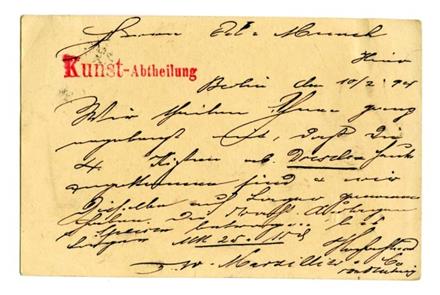 Herrn Ed. Munch
Hier
Kunst-Abtheilung
Berlin den 10/2 94
Wir theilen Ihnen ganz
ergebenst mit, dass die
4 Kisten ab Dresden heute
angekommen sind & wir
dieselben auf Lager genommen
haben. Die
Spesen betragen bis
Mk 25.
W. Marzillier & Co